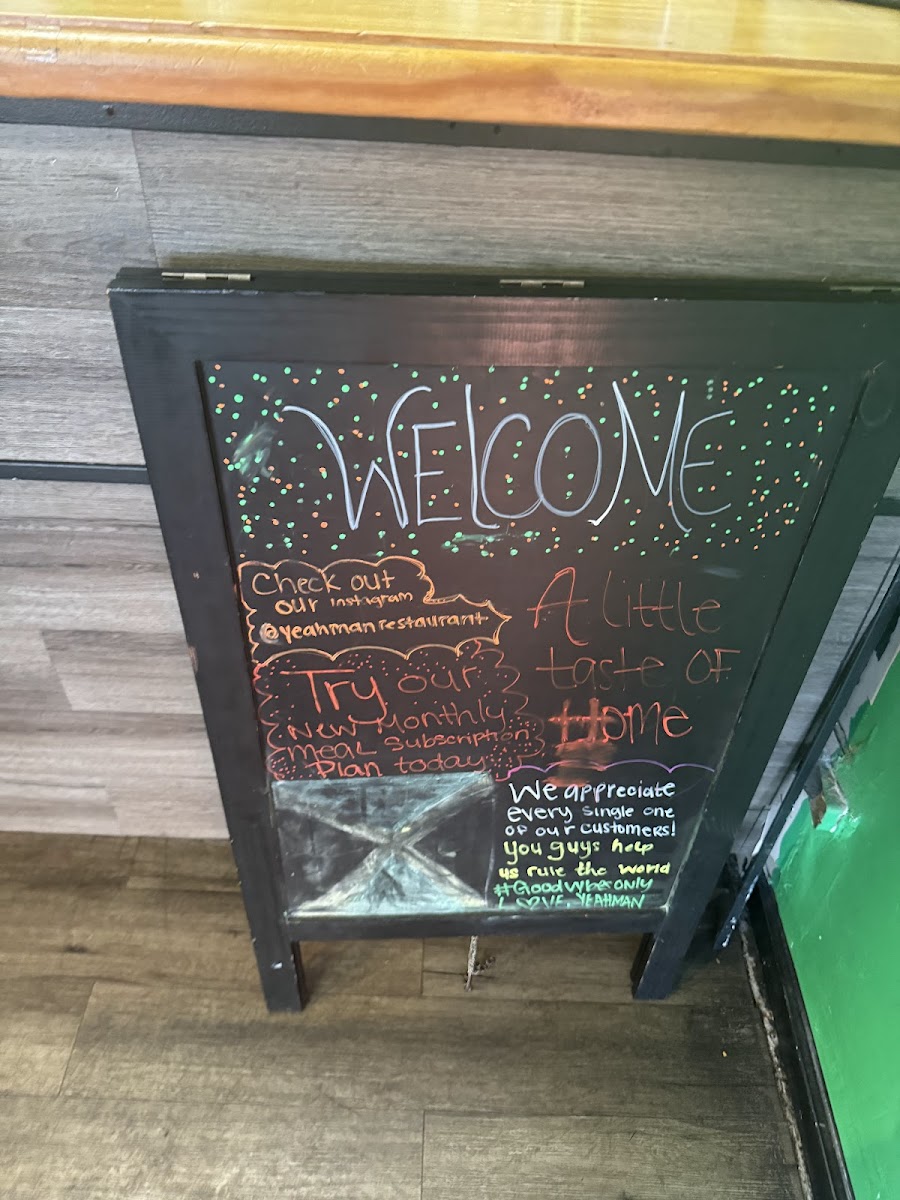 WELCOME
Check out
our instagram
@yeahmanrestaurant
Try our
New Monthly
Meal Subscription
Plan today
A little
taste OF
Home
We appreciate
every single one
of our customers!
you guys help
us rule the world
#Goodvybesonly
LOVE, YEAHMAN